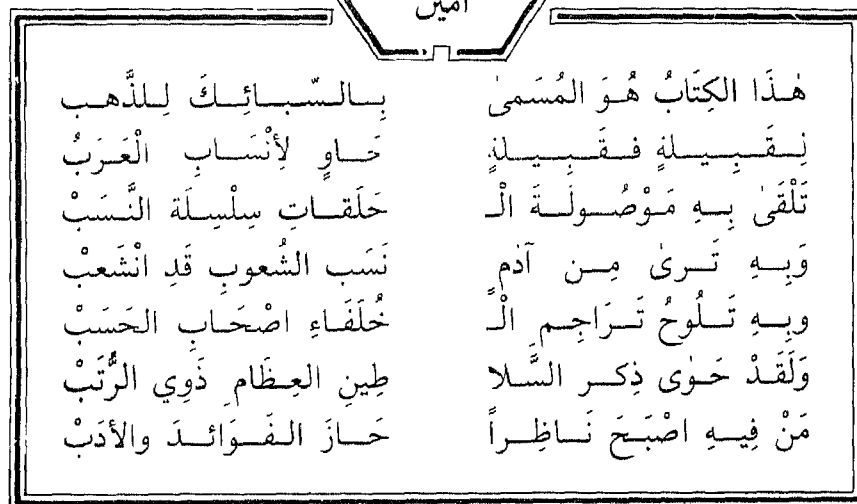 آمين
هٰذَا الكِتَابُ هُوَ المُسَمىٰ بِالسّبائِكَ لِلذَّهب
لِقَبِيلةٍ فقَبِيلةٍ حَاوٍ لِأنْسَابِ الْعَرَبُ
تَلْقَىٰ بِهِ مَوْصُولَةَ الْـ حَلَقاتِ سِلْسِلَة النَّسَبْ
وَبِهِ تَرىٰ مِن آدَمٍ نَسَب الشُعوبِ قَدِ انْشَعبْ
وبِهِ تَلُوحُ تَرَاجِمِ الْـ خُلَفَاءِ اصْحَابِ الحَسَبْ
وَلَقَدْ حَوٰى ذِكر السَّلا طِينِ العِظَامِ ذَوِي الرُّتَبْ
مَنْ فِيهِ اصْبَحَ نَاظِراً حَازَ الفَوَائدَ والأدَبْ